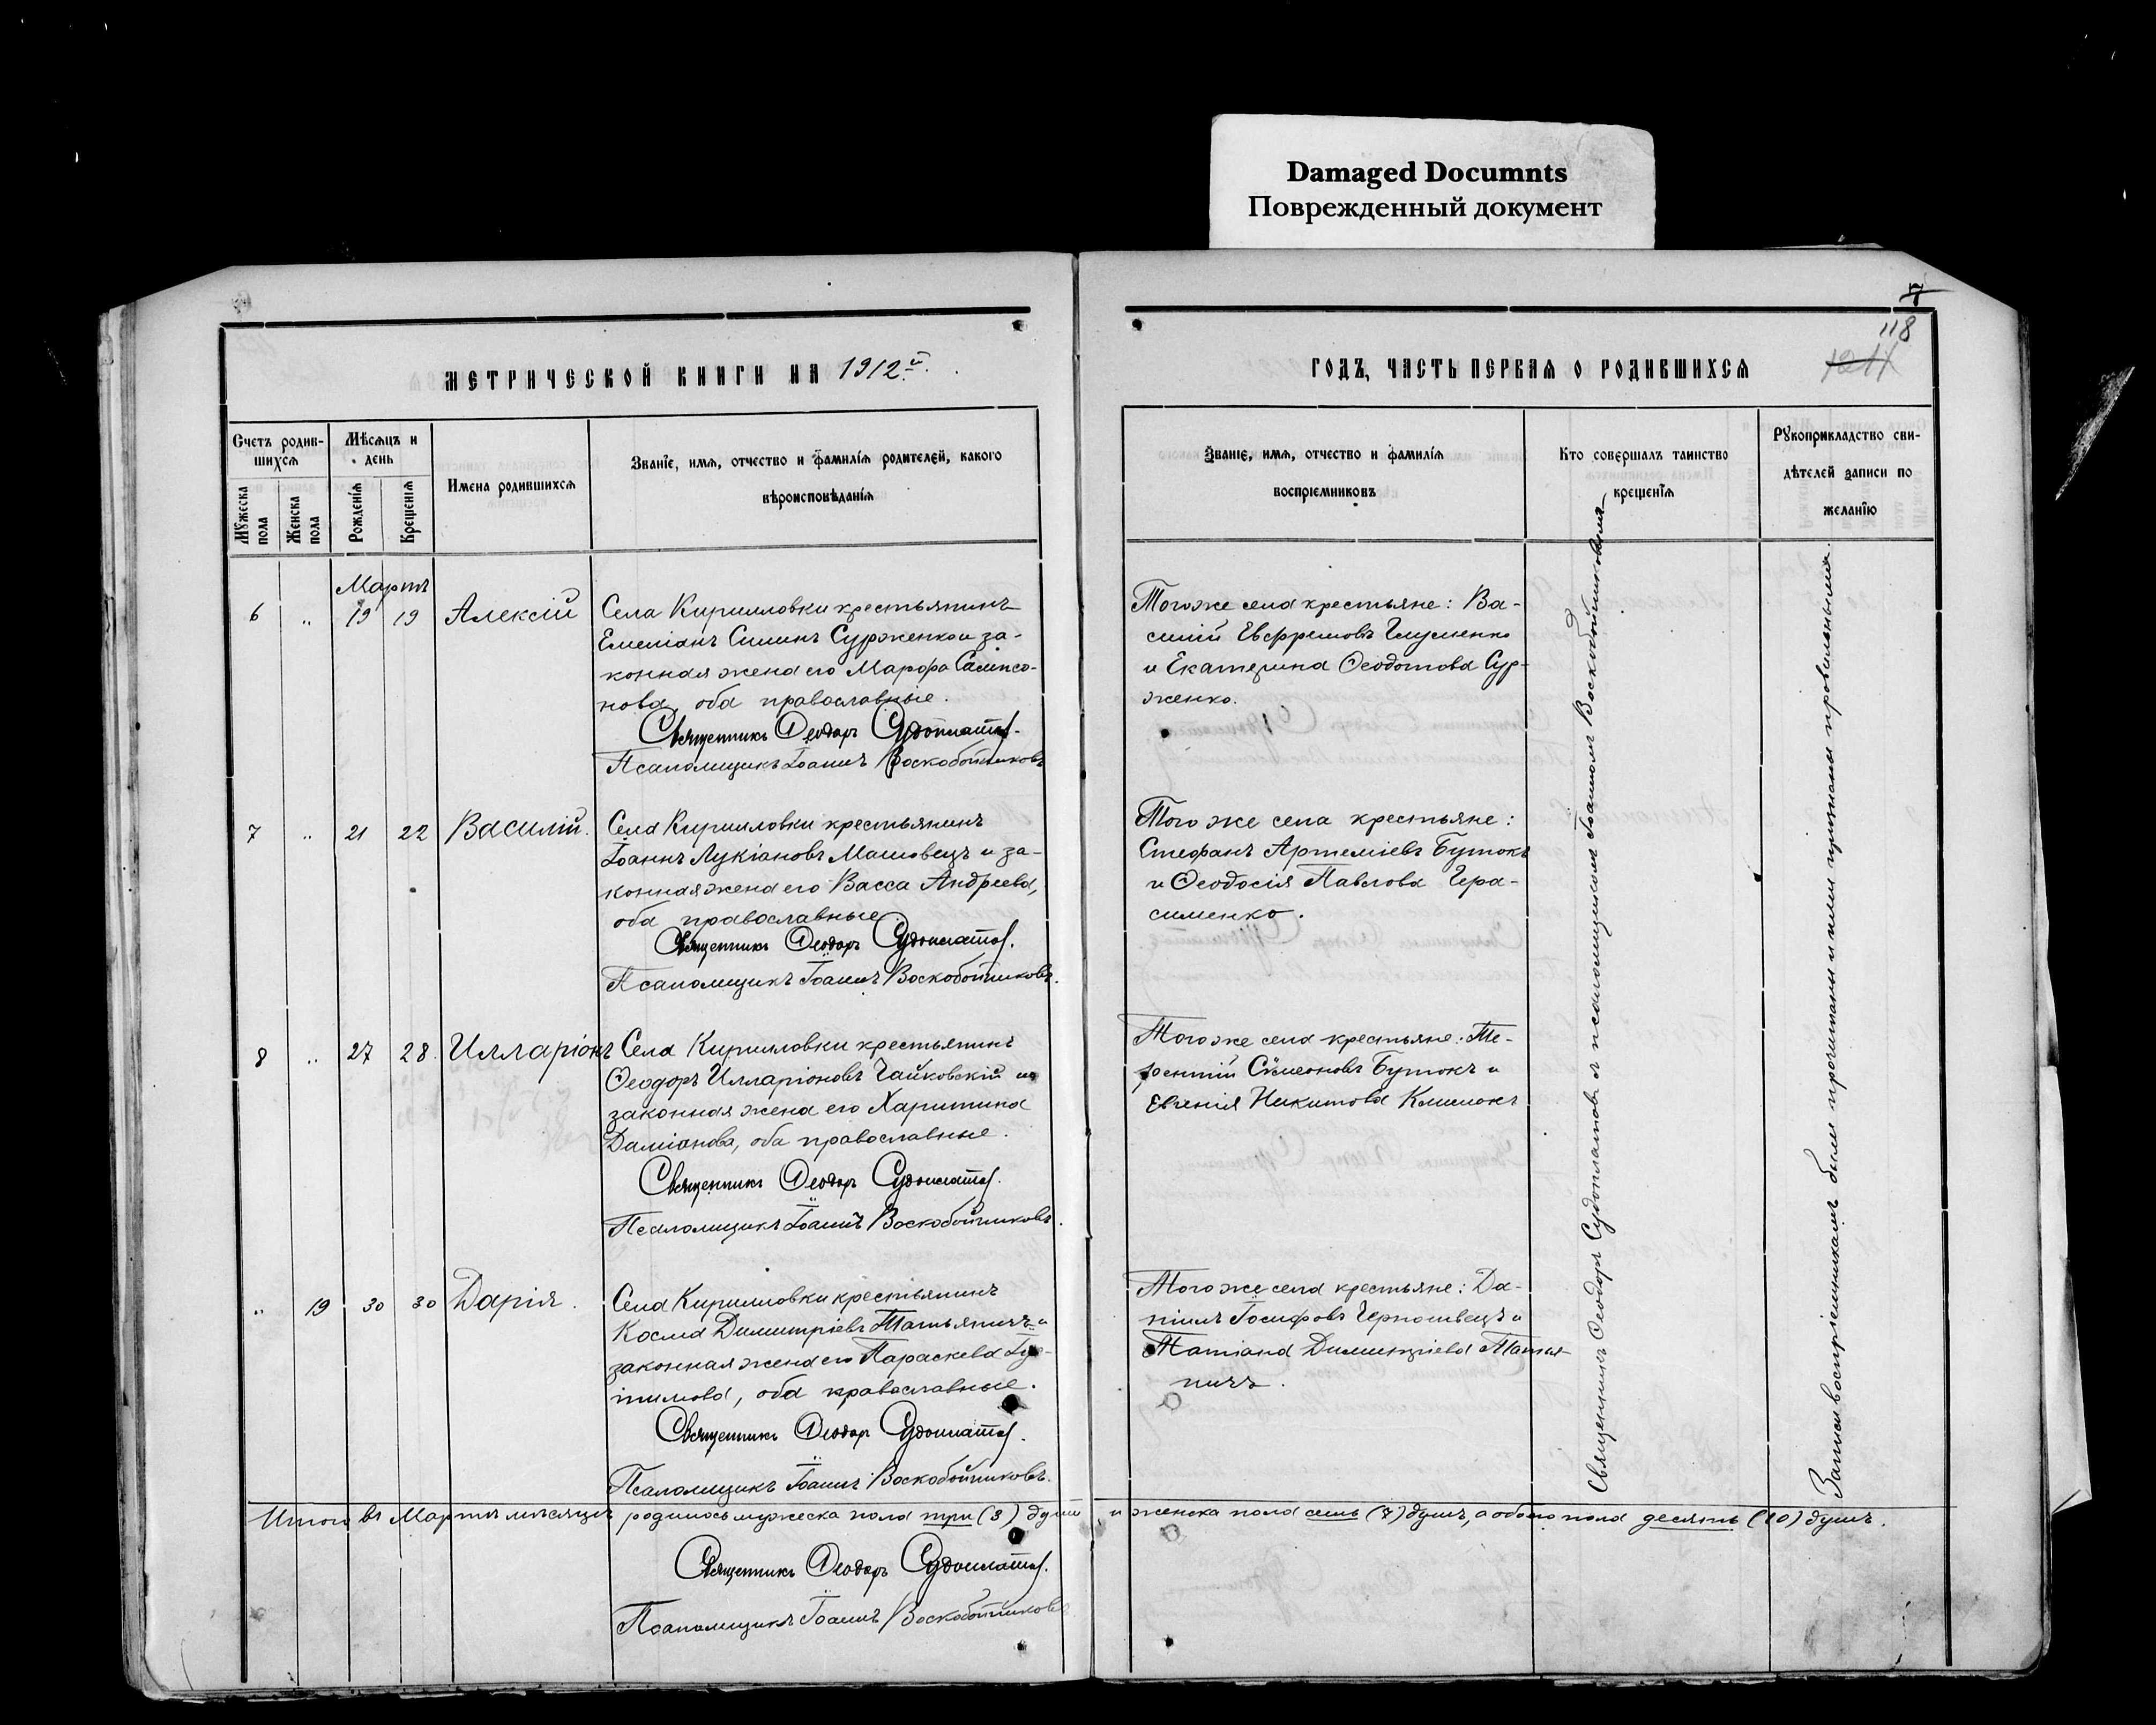 Damaged Documnts
Поврежденный документ
7
118
МЕТРИЧЕСКОЙ КНИГИ НА 1912й.
ГОДЪ, ЧАСТЬ ПЕРВАЯ О РОДИВШИХСЯ
Счетъ родив-
шихся
Мѣсяцъ и
день
Мужеска
пола
Женска
пола
Рожденія
Крещенія
Имена родившихся
Званіе, имя, отчество и фамилія родителей, какого
вѣроисповѣданія
Званіе, имя, отчество и фамилія
воспріемниковъ
Кто совершалъ таинство
крещенія
Рукоприкладство сви-
дѣтелей записи по
желанію
Мартъ
6 " 19 19 Алексій
Села Кирилловки крестьянинъ
Емеліанъ Силинъ Сурженко и за-
конная жена его Марфа Сампсо-
нова, оба православные.
Священникъ Ѳеодоръ Судоплатов.
Псаломщикъ Іоаннъ Воскобойниковъ
Того же села крестьяне: Ва-
силій Евфремовъ Глущенко
и Екатерина Ѳеодотова Сур-
женко.
7 " 21 22 Василій.
Села Кирилловки крестьянинъ
Іоаннъ Лукіановъ Маловецъ и за-
конная жена его Васса Андреева,
оба православные.
Священникъ Ѳеодоръ Судоплатов.
Псаломщикъ Іоаннъ Воскобойниковъ.
Того же села крестьяне:
Стефанъ Артеміевъ Бутокъ
и Ѳеодосія Павлова Гера-
сименко.
8 " 27 28. Илларіонъ
Села Кирилловки крестьянинъ
Ѳеодоръ Илларіоновъ Чайковскій и
законная жена его Харитина
Даміанова, оба православные.
Священникъ Ѳеодоръ Судоплатов.
Псаломщикъ Іоаннъ Воскобойниковъ.
Того же села крестьяне: Те-
рентій Сѵмеоновъ Бутокъ и
Евгенія Никитова Климокъ
" 19 30 30 Дарія.
Села Кирилловки крестьянинъ
Косма Димитріевъ Татьяничъ и
законная жена его Параскева
тимова, оба православные.
Священникъ Ѳеодоръ Судоплатов.
Псаломщикъ Іоаннъ Воскобойниковъ.
Того же села крестьяне: Да-
ніилъ Іосифовъ Черношвецъ и
Татіана Димитріева Татья-
ничъ.
Священникъ Ѳеодоръ Судоплатовъ съ псаломщикомъ Іоанномъ Воскобойниковымъ
Записи воспріемникамъ были прочитаны и ими признаны правильными.
Итого въ Мартѣ мѣсяцѣ родилось мужеска пола три (3) души и женска пола семь (7) душъ, а обоего пола десять (10) душъ.
Священникъ Ѳеодоръ Судоплатов.
Псаломщикъ Іоаннъ Воскобойниковъ